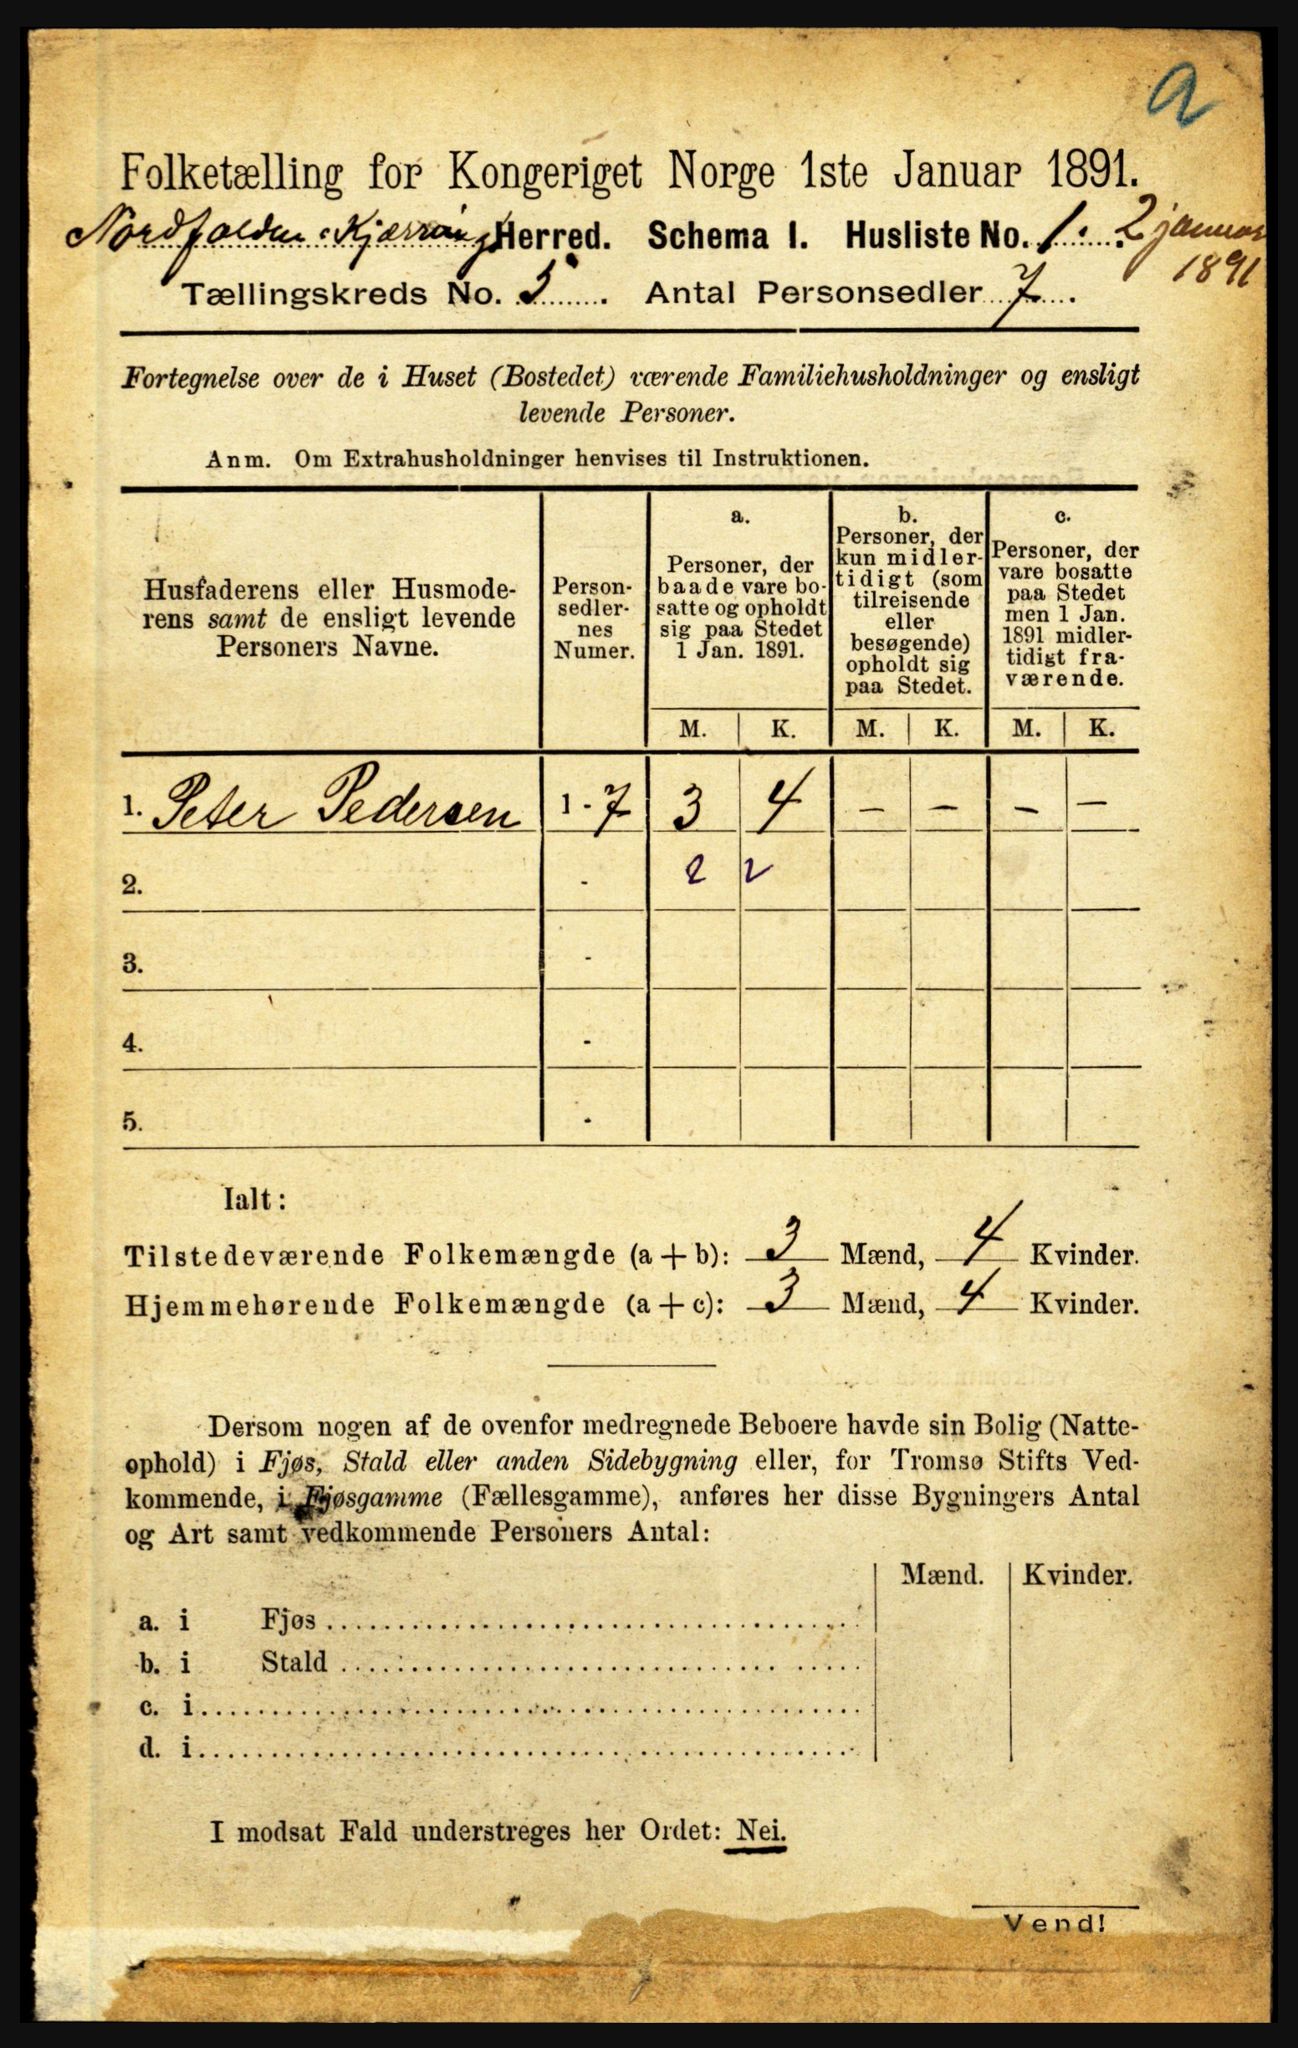 a
Folketælling for Kongeriget Norge 1ste Januar 1891.
Nordfolden-Kjærringø Herred. Schema I. Husliste No. 1. 2 januar
1891
Tællingskreds No. 5. Antal Personsedler 7.
Fortegnelse over de i Huset (Bostedet) værende Familiehusholdninger og ensligt
levende Personer.
Anm. Om Extrahusholdninger henvises til Instruktionen.
Husfaderens eller Husmode-
rens samt de ensligt levende
Personers Navne.
Person-
sedler-
nes
Numer.
a.
Personer, der
baade vare bo-
satte og opholdt
sig paa Stedet
1 Jan. 1891.
b.
Personer, der
kun midler-
tidigt (som
tilreisende
eller
besøgende)
opholdt sig
paa Stedet.
c.
Personer, der
vare bosatte
paa Stedet
men 1 Jan.
1891 midler-
tidigt fra-
værende.
M. K. M. K. M. K.
1. Peter Pedersen 1 - 7 3 4 — — — —
2. - 2 2
3. -
4. -
5. -
Ialt:
Tilstedeværende Folkemængde (a + b): 3 Mænd, 4 Kvinder.
Hjemmehørende Folkemængde (a + c): 3 Mænd, 4 Kvinder.
Dersom nogen af de ovenfor medregnede Beboere havde sin Bolig (Natte-
ophold) i Fjøs, Stald eller anden Sidebygning eller, for Tromsø Stifts Ved-
kommende, i Fjøsgamme (Fællesgamme), anføres her disse Bygningers Antal
og Art samt vedkommende Personers Antal:
Mænd. Kvinder.
a. i Fjøs
b. i Stald
c. i
d. i
I modsat Fald understreges her Ordet: Nei.
Vend!